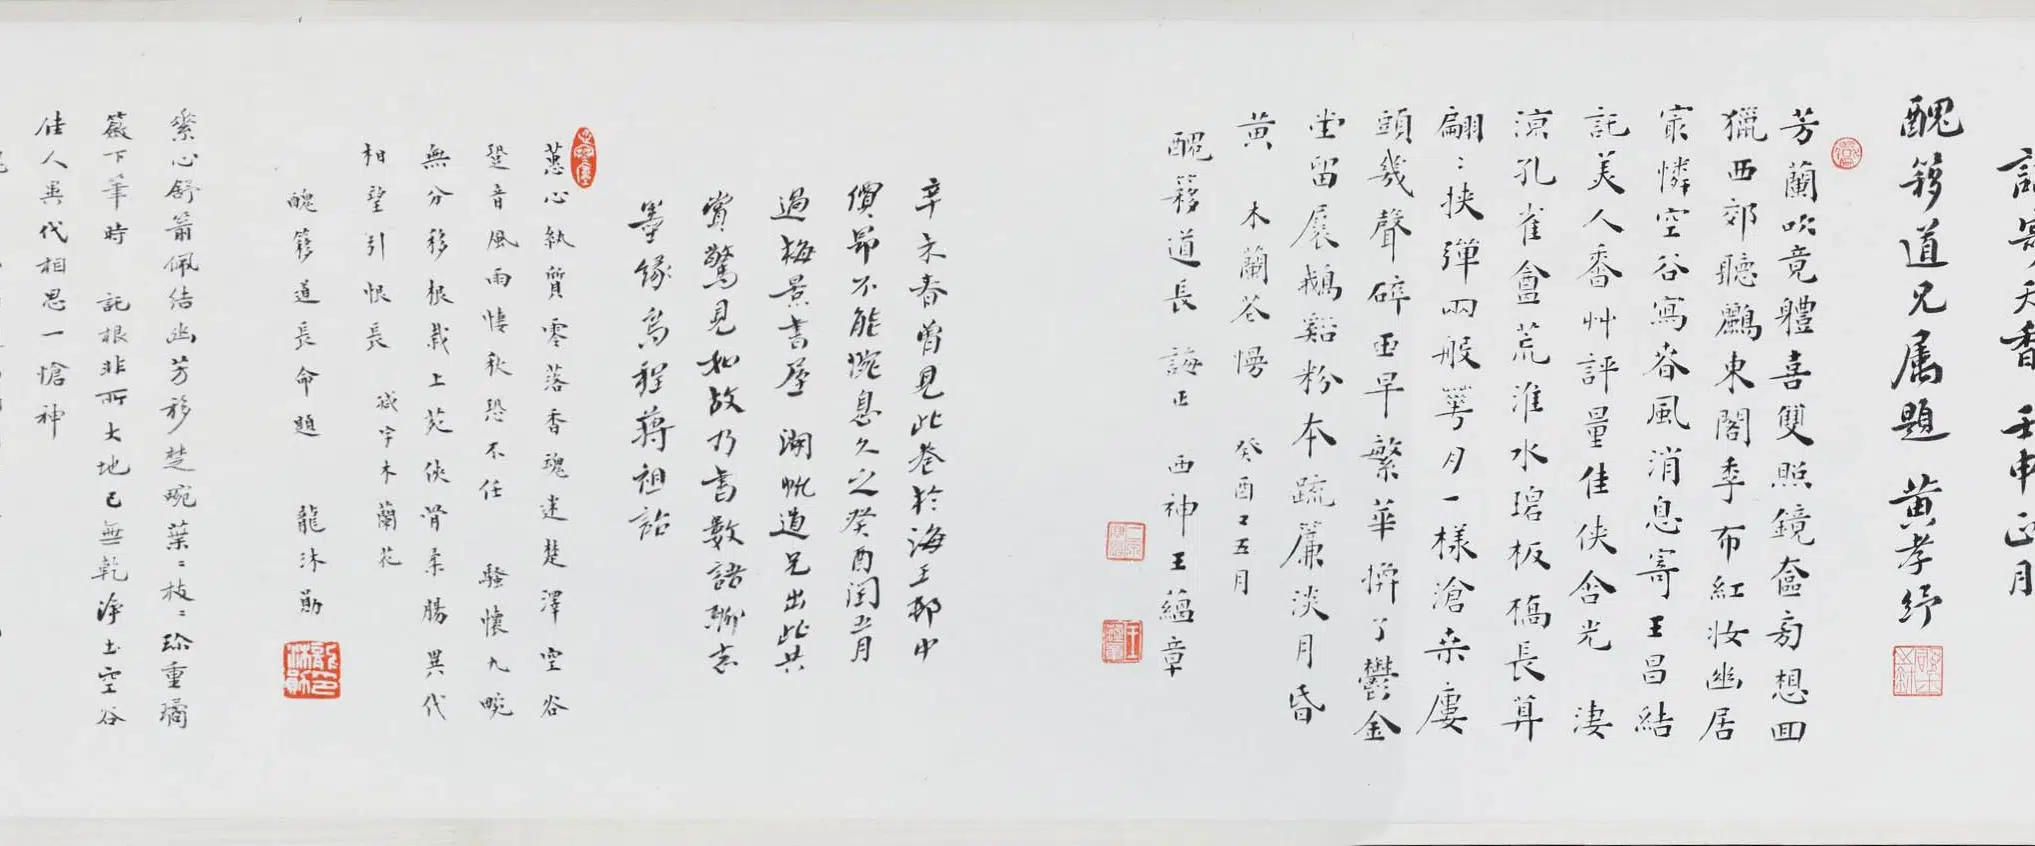 調寄天香 壬申正月
醜簃道兄属題 黄孝紓
芳蘭吹竟體喜雙照鏡奩旁想回
獵西郊聽鸝東閣季布紅妝幽居
寂憐空谷寫春風消息寄王昌結
託美人香艸評量佳俠含光 淒
涼孔雀盦荒淮水碧板橋長算
翩〻挾彈兩般華月一樣滄桑屢
頭幾聲碎玉早繁華懶了鬱金
堂留展鵝谿粉本疏簾淡月昏
黄 木蘭花慢 癸酉又五月
醜簃道長 誨正 西神王蘊章
辛未春曾見此卷於海王邨中
價昂不能悁息久之癸酉閏五月
過梅景書屋 湖帆道兄出此共
賞驚見如故乃書數語聊志
墨緣烏程蔣祖詒
蕙心紈質零落香魂迷楚澤空谷
跫音風雨悽秋恐不任 騷懷九畹
無分移根栽上苑俠骨柔腸異代
相望引恨長 減字木蘭花
醜簃道長命題 龍沐勛
龍沐勛
素心舒蕾佩結幽芳移楚畹葉〻枝〻珍重璚
箴下筆時 託根非所大地已無乾淨土空谷
佳人異代相思一愴神